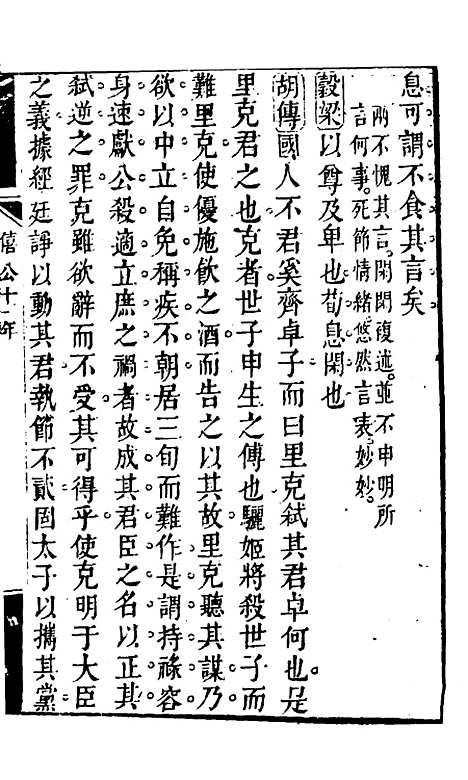 息可謂不食其言矣
兩不愧其言。閑閑複述。並不申明所
言何事。死節情緒。悠然言表。妙妙。
穀梁以尊及卑也荀息閑也
胡傳國人不君奚齊卓子而曰里克弒其君卓何也。是
里克君之也。克者。世子申生之傅也。驪姬將殺世子。而
難里克。使優施飲之酒。而告之以其故。里克聽其謀。乃
欲以中立自免。稱疾不朝。居三旬而難作。是謂持祿容
身。速獻公殺適立庶之禍者。故成其君臣之名。以正其
弒逆之罪。克雖欲辭而不受。其可得乎。使克明于大臣
之義。據經廷諍。以動其君。執節不貳。固太子以攜其黨
僖公十年